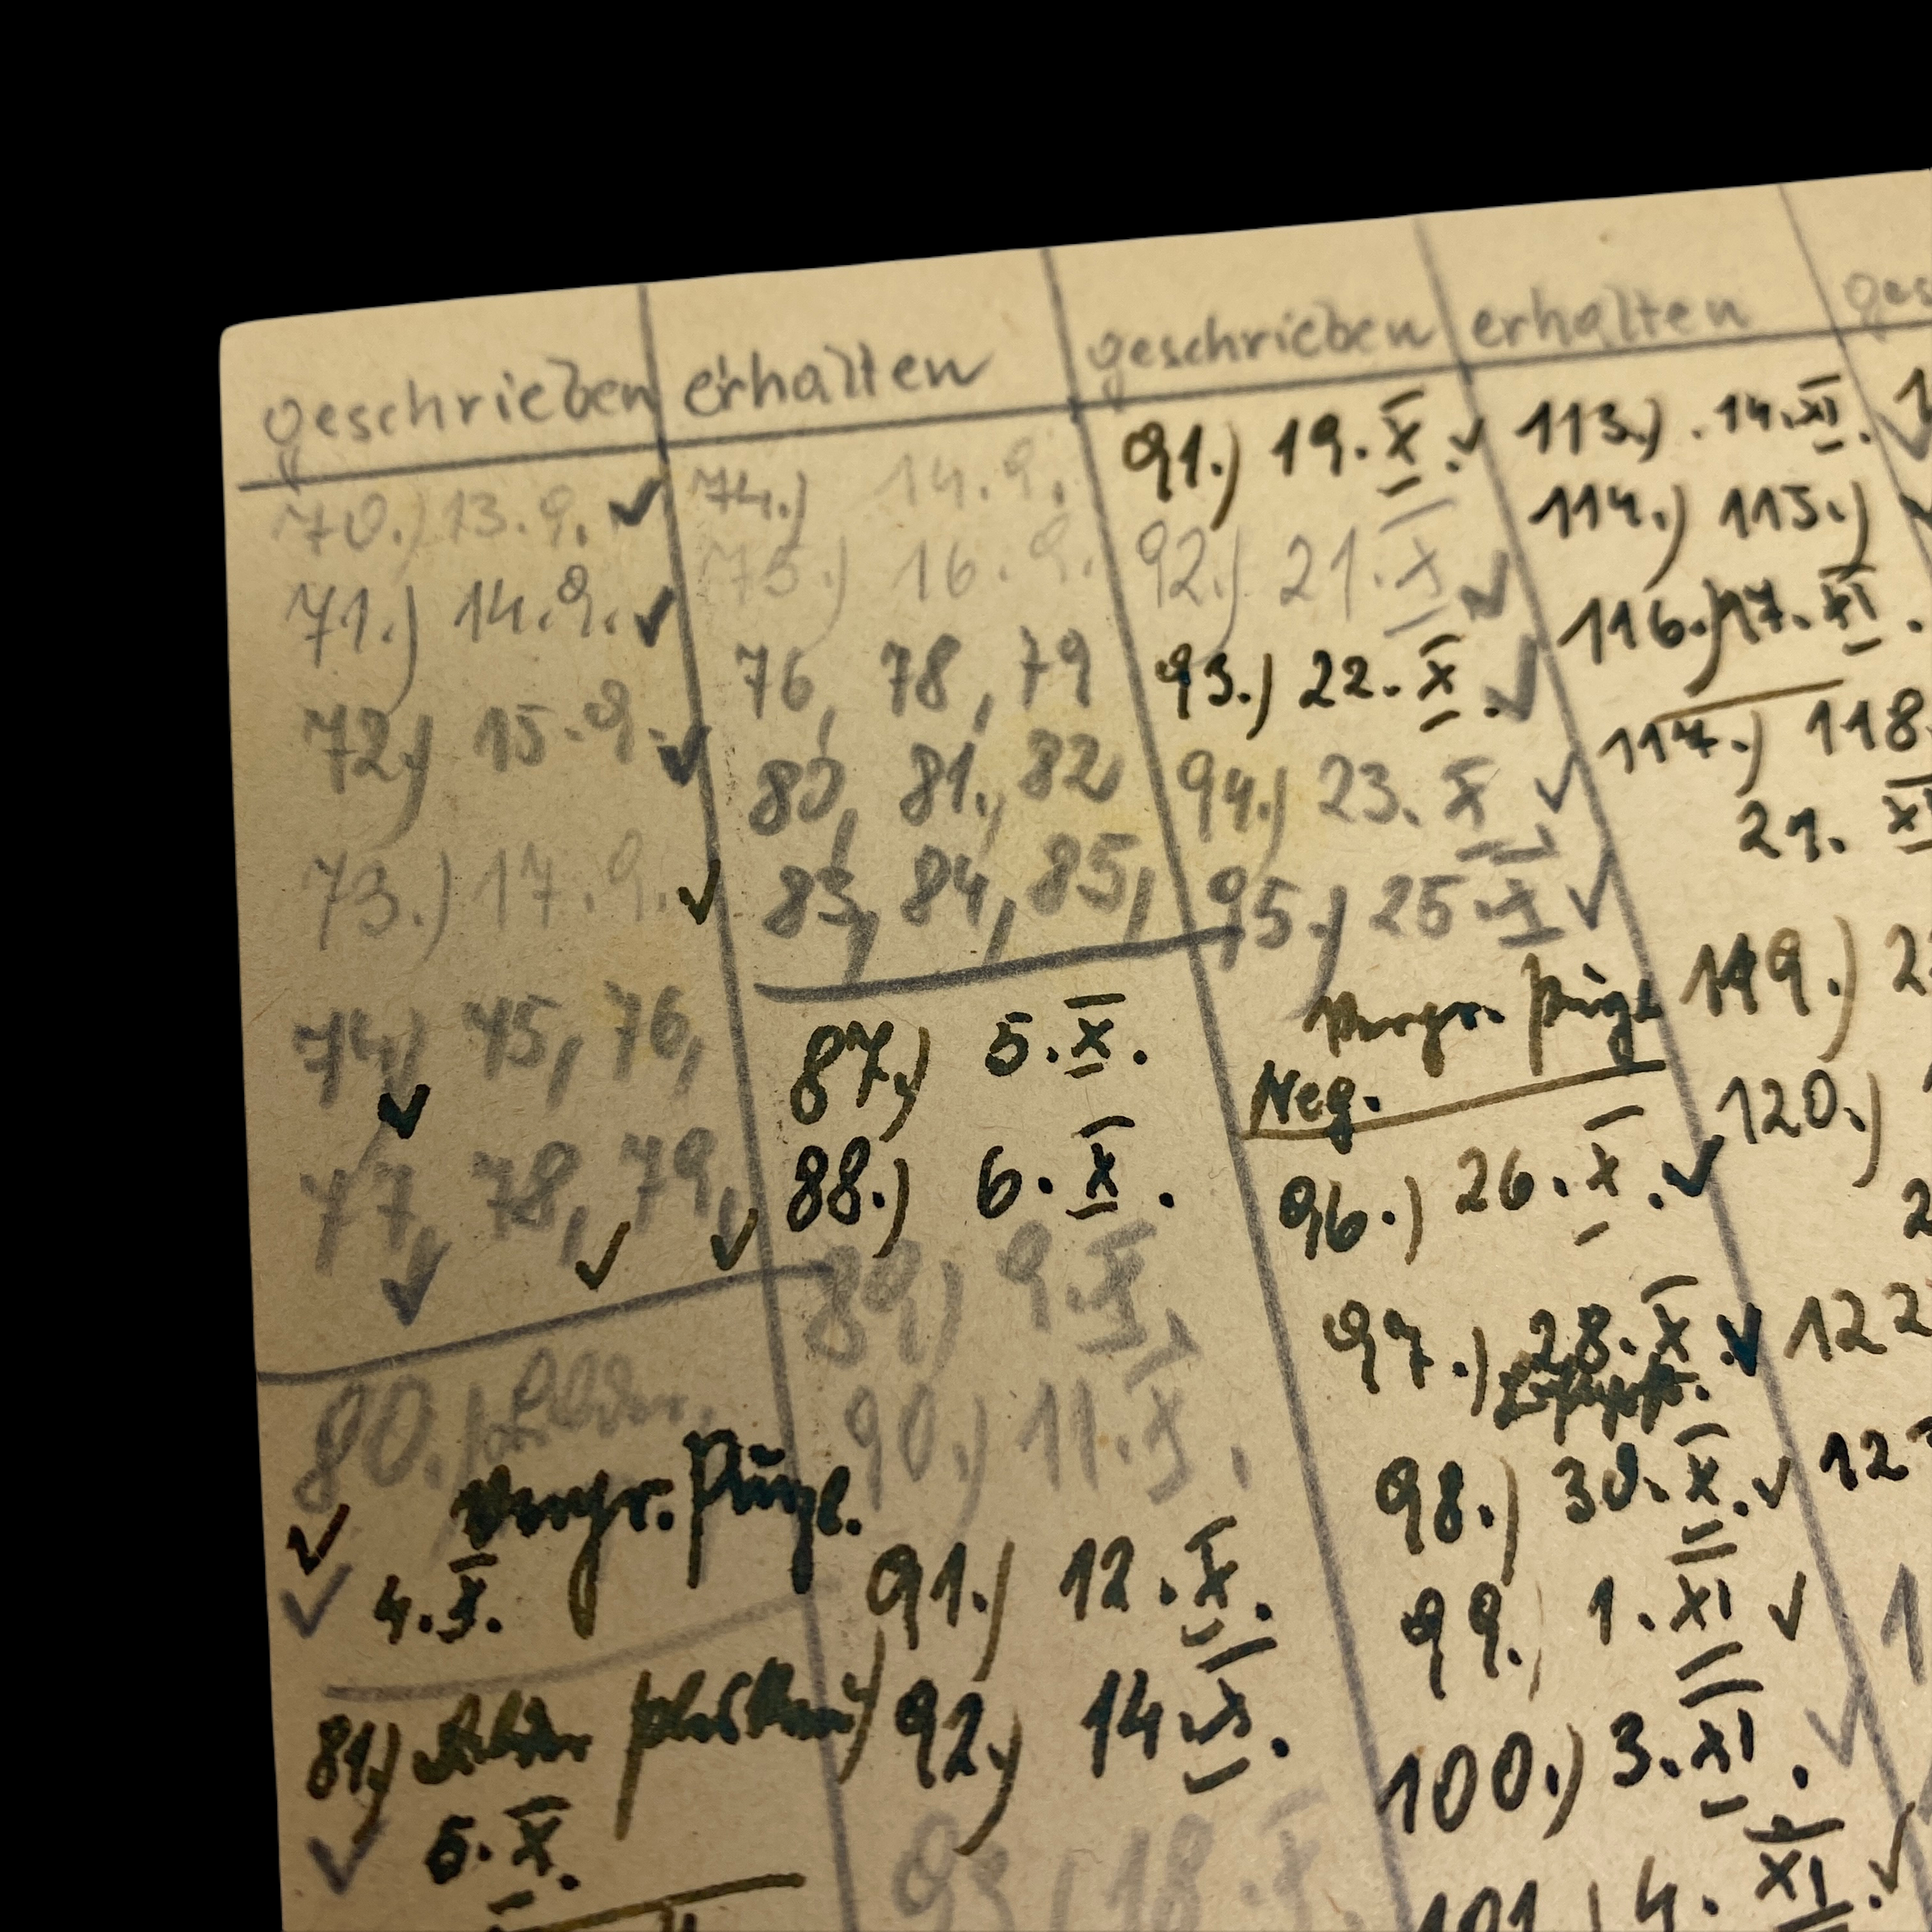 geschrieben erhalten geschrieben erhalten ges
70.) 13.9. ✓ 74.) 14.9. 91.) 19.X. ✓ 113.) 14.XI.
71.) 14.9. ✓ 75.) 16.9. 92.) 21.X ✓ 114.) 115.)
72.) 15.9. ✓ 76, 78, 79 93.) 22.X. ✓ 116.) 17.XI.
73.) 17.9. ✓ 80, 81., 82 94.) 23.X ✓ 117.) 118.
83, 84, 85, 95.) 25.X ✓ 21. XI
74.) 75, 76, 87.) 5.X. Neg. 119.) 2
77, 78, 79, 88.) 6.X. 96.) 26.X. ✓ 120.)
89.) 9.X. 97.) 28.X. ✓ 122
80.) Bilder, 90.) 11.X. 98.) 30.X. ✓ 12
4.X. 91.) 12.X. 99.) 1.XI ✓
81.) Bilder 92.) 14.X. 100.) 3.XI.
5.X. 93.) 18.X 101.) 4.XI. ✓